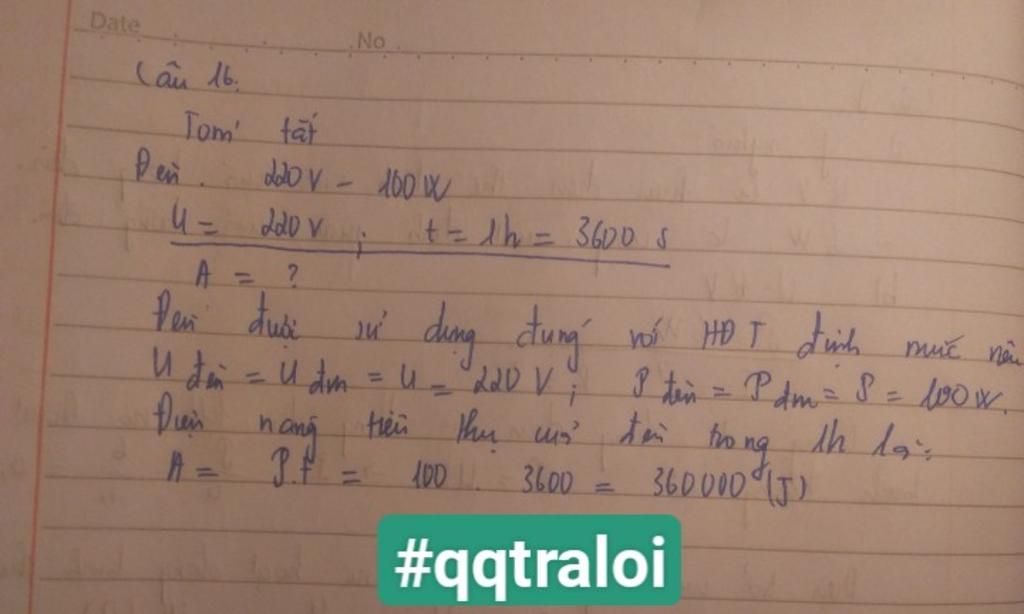 Date
No
Câu 16.
Tóm tắt
Đèn. 220V - 100W
U = 220V ; t = 1h = 3600 s
A = ?
Đèn được sử dụng đúng với HĐT định mức nên
U đèn = U đm = U = 220V ; P đèn = P đm = P = 100W.
Điện năng tiêu thụ của đèn trong 1h là:
A = P.t = 100 . 3600 = 360000 (J)
#qqtraloi